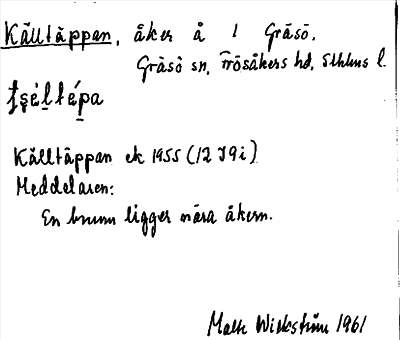 Källtäppan, åker å 1 Gräsö.
Gräsö sn, Frösåkers hd, Sthlms l.
Källtäppan ek 1955 (12 I 9i)
Meddelaren:
En brunn ligger nära åkern.
Wikström 1961